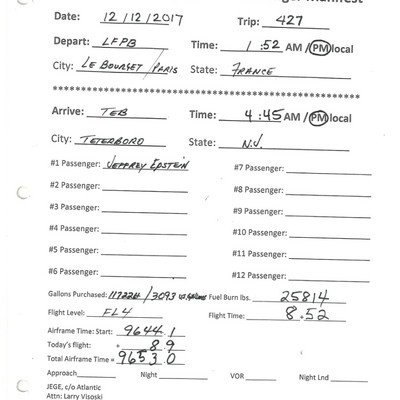 Manifest
Date: 12/12/2017 Trip: 427
Depart: LFPB Time: 1:52 AM / PM local
City: LE BOURGET / PARIS State: FRANCE
****************************************************
Arrive: TEB Time: 4:45 AM / PM local
City: TETERBORO State: N.J.
#1 Passenger: JEFFREY EPSTEIN #7 Passenger:
#2 Passenger: #8 Passenger:
#3 Passenger: #9 Passenger:
#4 Passenger: #10 Passenger:
#5 Passenger: #11 Passenger:
#6 Passenger: #12 Passenger:
Gallons Purchased: /3093 Fuel Burn lbs. 25814
Flight Level: FL4 Flight Time: 8.52
Airframe Time: Start: 9644.1
Today's flight: + 8.9
Total Airframe Time = 9653.0
Approach Night VOR Night Lnd
JEGE, c/o Atlantic
Attn: Larry Visoski